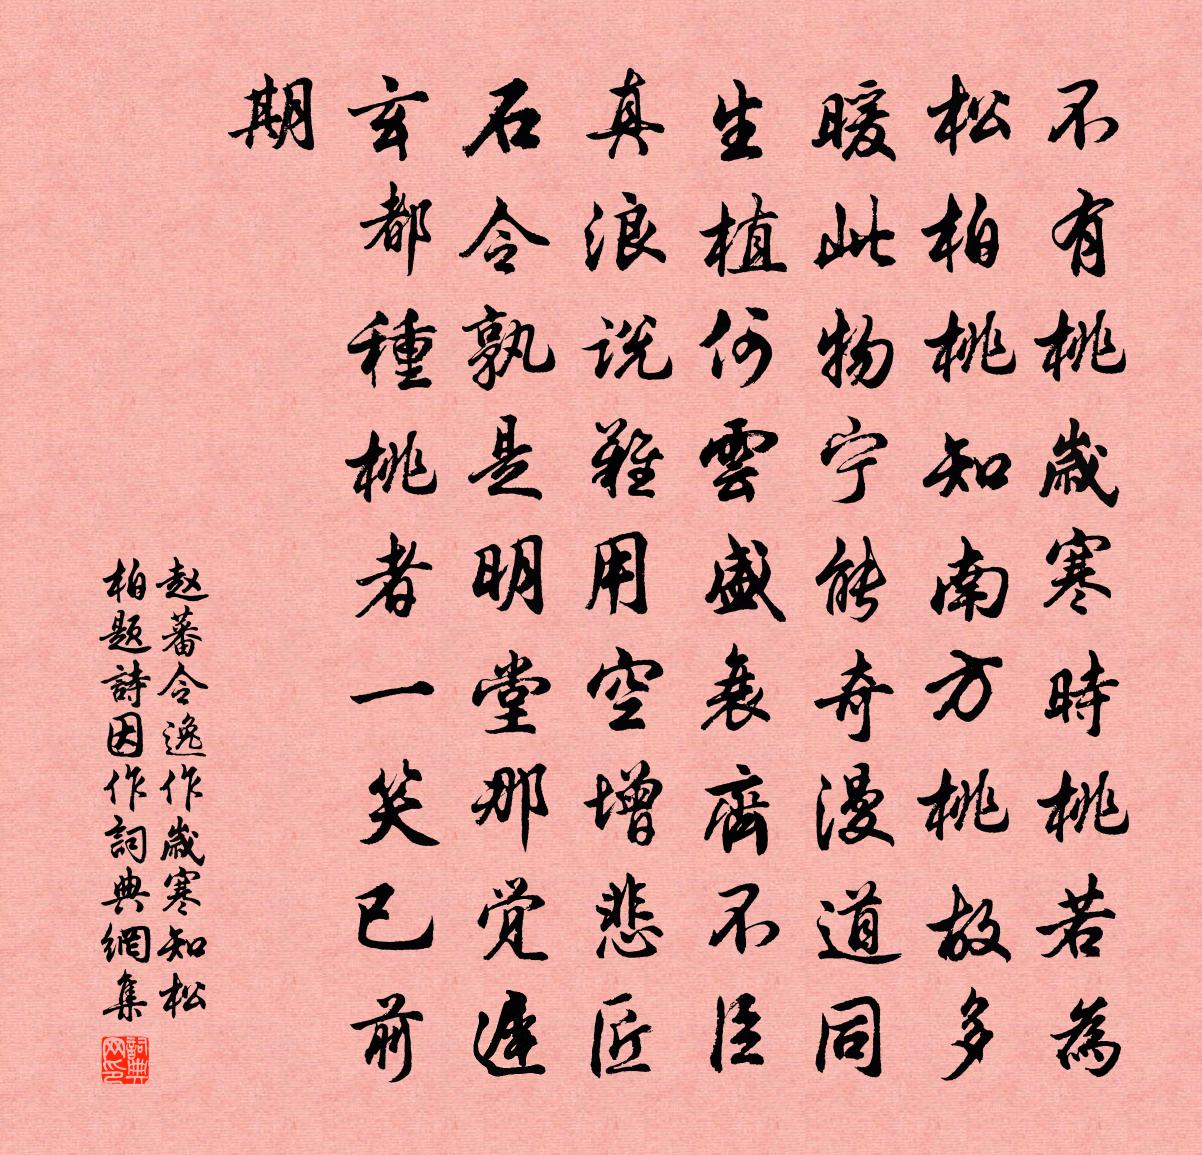 不有桃歲寒時桃若為
松柏桃知南方桃故多
暖此物宁能奇漫道同
生植何雲盛衰齊不臣
真浪說難用空增悲匠
石令孰是明堂那覺遲
玄都種桃者一笑已前
期
赵蕃令逸作歲寒知松
柏題詩因作詞典網集
詞典
网印